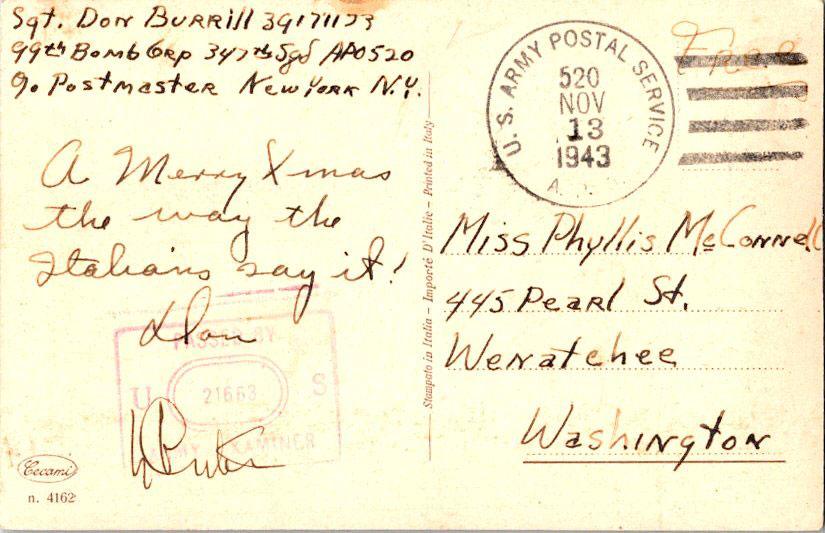 Sgt. Don Burrill 39171123
99th Bomb Grp 347th Sqd APO 520
c/o Postmaster New York N.Y.
Free
U. S. ARMY POSTAL SERVICE
520
NOV
13
1943
A. P.
A Merry Xmas
the way the
Italians say it!
Don
PASSED BY
U 21663 S
ARMY EXAMINER
Stampato in Italia – Importé D'Italie – Printed in Italy
Miss Phyllis McConnell
445 Pearl St.
Wenatchee
Washington
Cecami
n. 4162